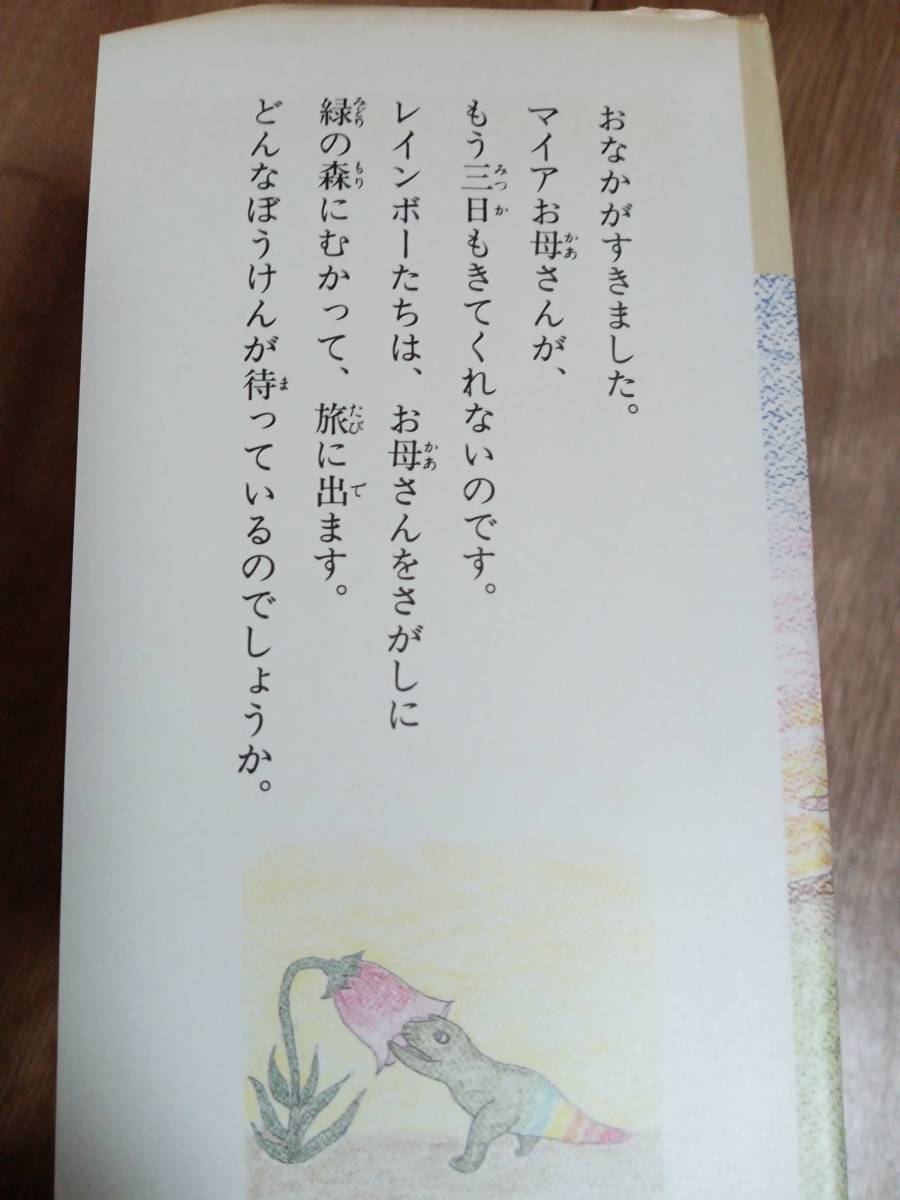 おなかがすきました。
マイアお母さんが、
もう三日もきてくれないのです。
レインボーたちは、お母さんをさがしに
緑の森にむかって、旅に出ます。
どんなぼうけんが待っているのでしょうか。